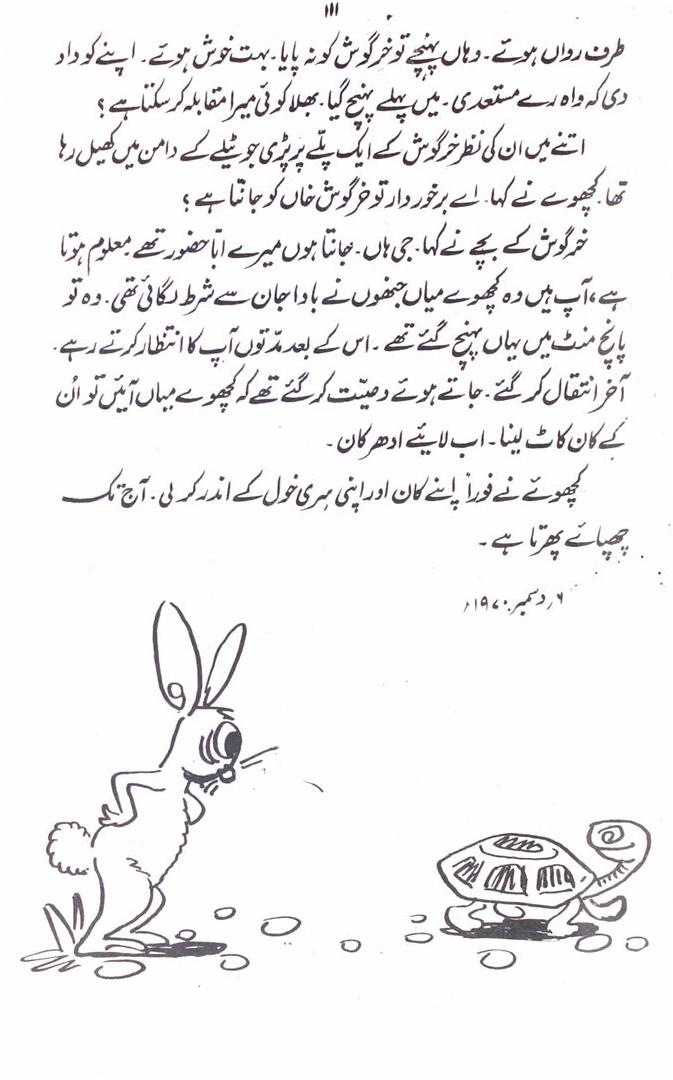 ۱۱۱
طرف رواں ہوئے۔ وہاں پہنچے تو خرگوش کو نہ پایا۔ بہت خوش ہوئے۔ اپنے کو داد
دی کہ واہ رے مستعدی۔ میں پہلے پہنچ گیا۔ بھلا کوئی میرا مقابلہ کر سکتا ہے ؟
اتنے میں ان کی نظر خرگوش کے ایک پلے پر پڑی جو ٹیلے کے دامن میں کھیل رہا
تھا۔ کچھوے نے کہا۔ اے برخوردار تو خرگوش خاں کو جانتا ہے ؟
خرگوش کے بچے نے کہا۔ جی ہاں۔ جانتا ہوں میرے ابّا حضور تھے معلوم ہوتا
ہے، آپ ہیں وہ کچھوے میاں جنھوں نے باوا جان سے شرط لگائی تھی۔ وہ تو
پانچ منٹ میں یہاں پہنچ گئے تھے ۔ اس کے بعد مدّتوں آپ کا انتظار کرتے رہے۔
آخر انتقال کر گئے۔ جاتے ہوئے وصیّت کر گئے تھے کہ کچھوے میاں آئیں تو اُن
کے کان کاٹ لینا۔ اب لایئے ادھر کان۔
کچھوے نے فوراً اپنے کان اور اپنی سری خول کے اندر کر لی۔ آج تک
چھپائے پھرتا ہے ۔
۶؍ دسمبر ۱۹۷۰ء